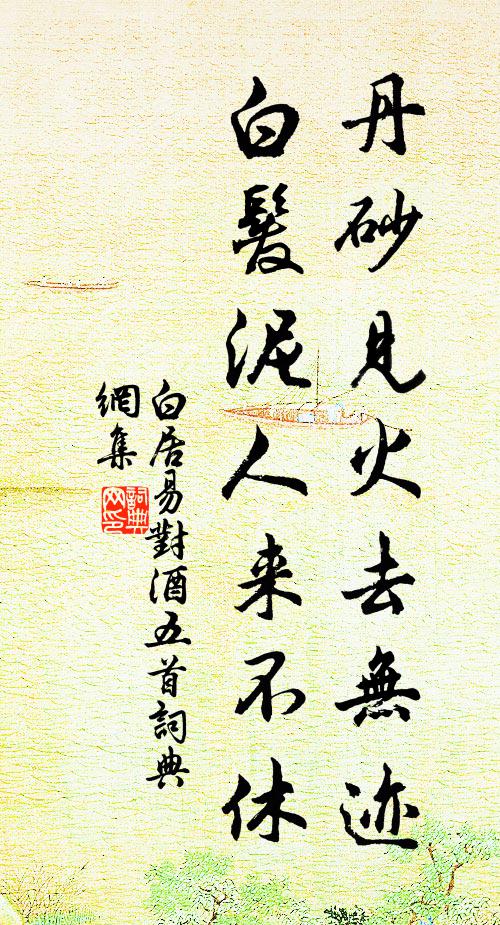 丹砂見火去無迹
白髮泥人来不休
白居易對酒五首詞典
網集
詞典
网印